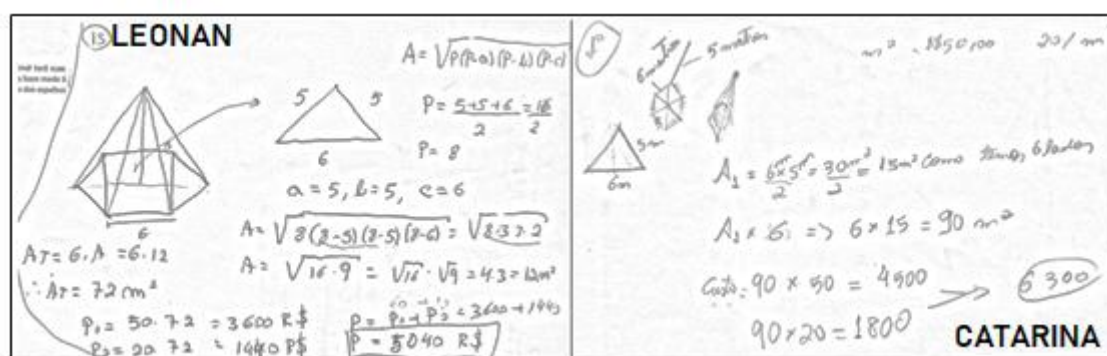 15 LEONAN
A = √P(P-a)(P-b)(P-c)
5 5
6
P = 5+5+6 = 16
2 2
P = 8
a = 5, b = 5, c = 6
6
A = √8(8-5)(8-5)(8-6) = √8·3²·2
A = √16·9 = √16·√9 = 4·3 = 12m²
AT = 6.A = 6.12
∴ AT = 72 m²
P₁ = 50.72 = 3600 R$
P₂ = 20 72 = 1440 R$
P = P₁ + P₂ = 3600 + 1440
P = 5040 R$
5 metros
m² = R$50,00 20/m
5m
6m
A₁ = 6m×5m = 30m² = 15m² Como temos 6 lados
2 2
A₁ × 6 => 6 × 15 = 90 m²
Custo: 90 × 50 = 4500
90×20 = 1800
6300
CATARINA